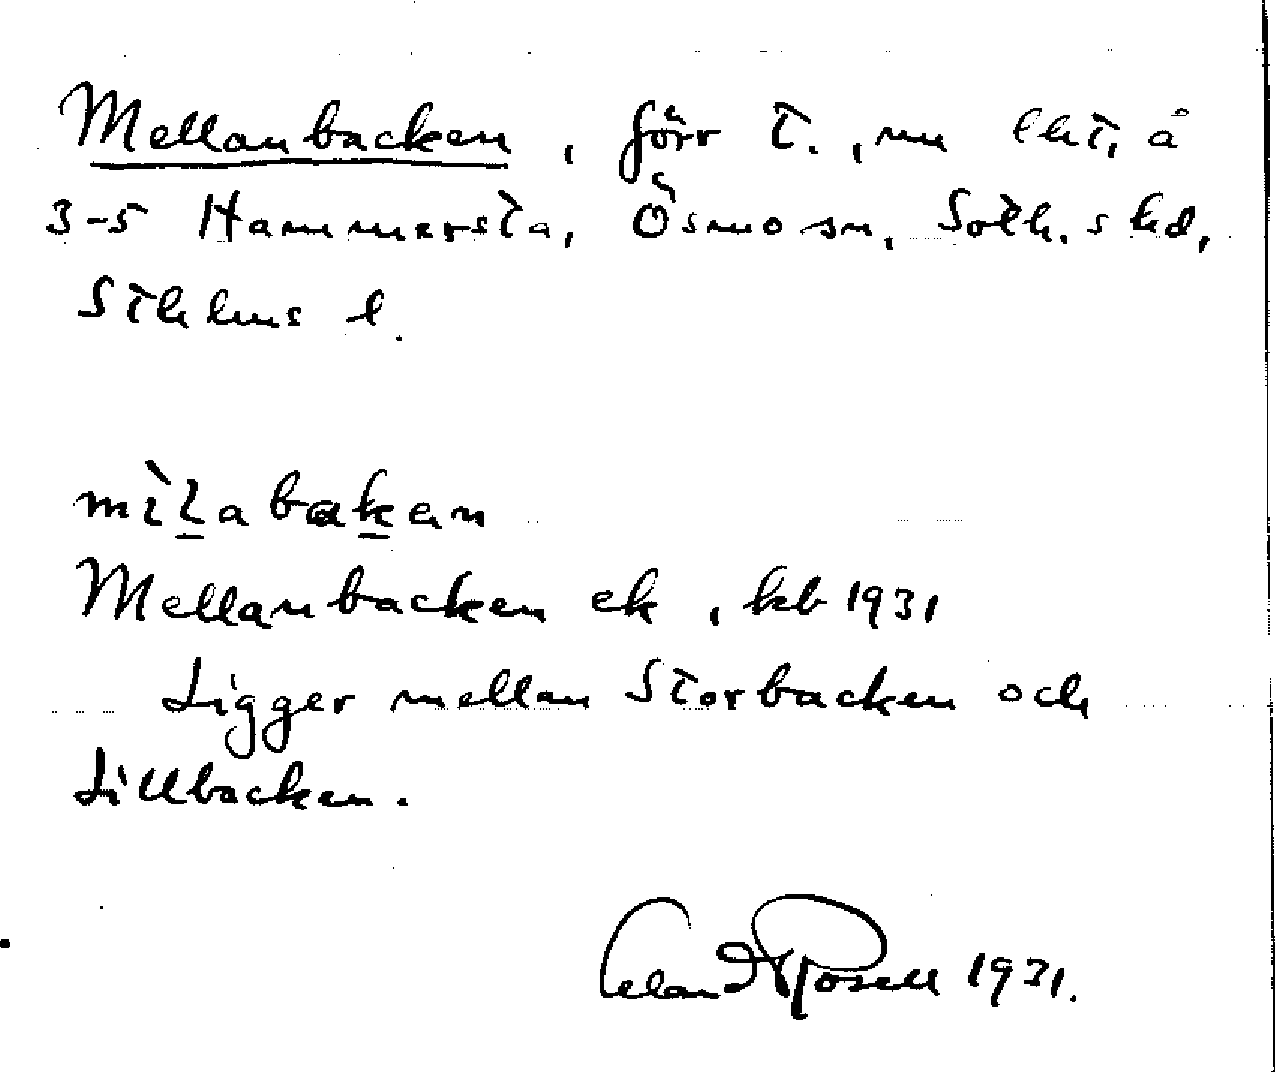 Mellanbacken, förr t., nu lht, å
3-5 Hammersta, Ösmo sn, Soth.s hd,
Sthlms l.
mìlabakan
Mellanbacken ek, kb 1931
Ligger mellan Storbacken och
Lillbacken.
Erland Rosell 1931.